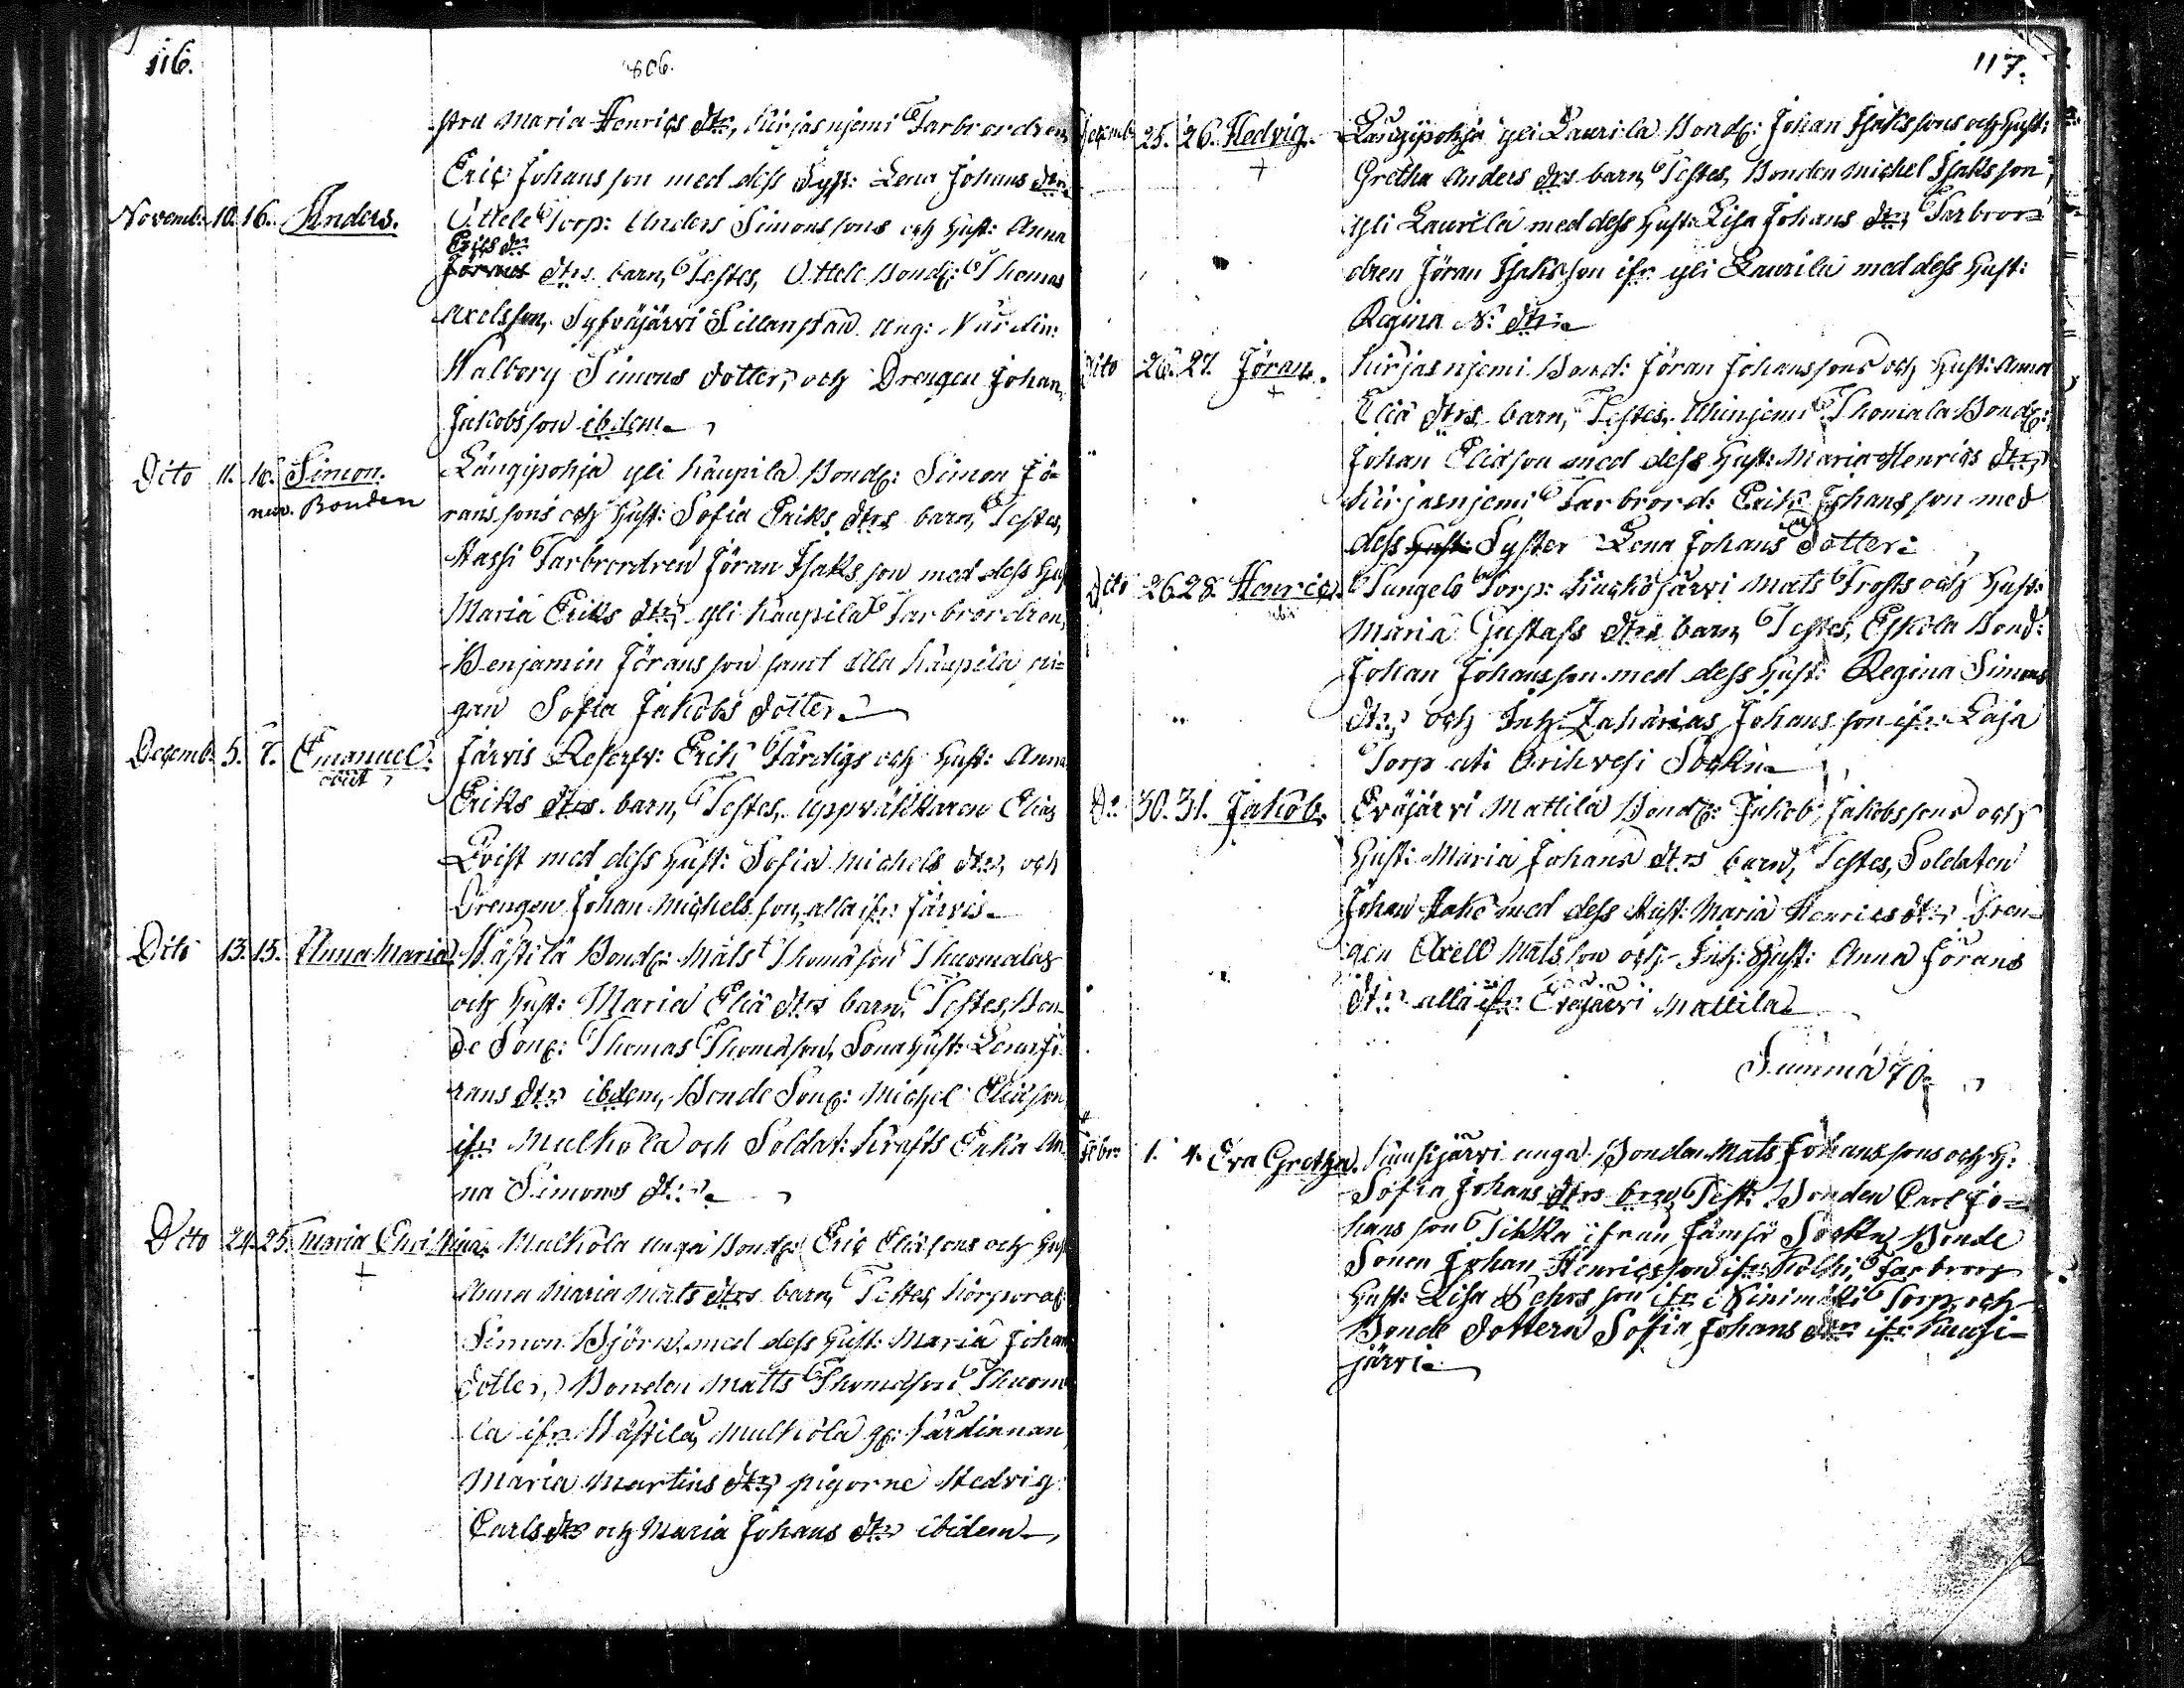 116.
806.
stru Maria Henrics dtr, Kirjasnjemi Farbrordren
Eric Johansson med dess Syst: Lena Johans dtr
Novemb: 10. 16. Anders. Uttele Torp: Anders Simonssons och Hust: Anna
Erics dr
dtrs barn, Testes, Uttele Bond: Thomas
Axelsson, Syfväjärvi Sillanpää ung: Värdin:
Walborg Simons dotter, och Drengen Johan
Jakobsson ibidem
Dito 11. 16. Simon. Längipohja yli Kaupila Bond: Simon Jö-
Bonden
ranssons och Hust: Sofia Eriks dtrs barn, Testes,
Hassi Farbrordren Jöran Isaksson med dess Hust
Maria Eriks dtr, yli Kaupila Farbrordren,
Benjamin Jöransson samt alla Kaupila pi-
gan Sofia Jakobs dotter
Decemb: 5. 7. Emanuel. Järvis Reserfv: Erik Färdigs och Hust: Anna
obiit
Eriks dtrs barn, Testes, uppvaktaren Elias
Qvist med dess Hust: Sofia Michels dtr, och
Drengen Johan Michelsson, alla ifr: Järvis
Dito 13. 15. Anna Maria. Västilä Bond: Mats Thomasson Thuomalas
och Hust: Maria Eliä dtrs barn, Testes, Bon-
de Son: Thomas Thomasson, Sonahust: Lena Jö-
rans dtr ibidem, Bonde Son: Michel Eliason
ifr: Mulkola och Soldat: Krafts Enka An-
na Simons dtr
Dito 24. 25. Maria Christina. Mulkola unga Bond: Eric Eliasons och Hust
Anna Maria Mats dtrs barn, Testes, Korporal:
Simon Björn med dess Hust: Maria Johans
dotter, Bonden Matts Thomasson Thuoma-
la ifr: Västilä, Mulkola g: Värdinnan
Maria Martins dtr, pigorne Hedvig
Carls dtr och Maria Johans dtr ibidem
117.
Decemb 25. 26. Hedvig. Längipohja yli Laurila Bond: Johan Isakssons och Hust:
Gretha Anders dtrs barn, Testes, Bonden Michel Isaksson
yli Laurila med dess Hust: Lisa Johans dtr, Farbror-
dren Jöran Isaksson ifr yli Laurila med dess Hust:
Regina N: dtr
Dito 26. 27. Jöran. Kirjasnjemi Bond: Jöran Johanssons och Hust: Anna
Eliä dtrs barn, Testes, Thomala Bond:
Johan Eliason med dess Hust: Maria Henrics dtr,
Kirjasnjemi Farbrord: Erik Johansson med
dess Hust: Syster Lena Johans dotter
Dito 26 28. Henric. Tungelo Torp: Kuckojärvi Mats Frosts och Hust:
Maria Gustafs dtrs barn, Testes, Eskola Bond:
Johan Johansson med dess Hust: Regina Simons
dtr, och Inh: Zaharias Johansson ifr: Laja
Torp uti Orihvesi Sockn
Do 30. 31. Jakob. Eväjärvi Mattila Bond: Jakob Jakobssons och
Hust: Maria Johans dtrs barn, Testes, Soldaten
Johan Hake med dess Hust: Maria Henrics dtr, Dren-
gen Axell Matsson och Inh: Hust: Anna Jörans
dtr alla ifr: Eväjärvi Mattila
Summa 70
Febr: 1. 4. Eva Gretha. Kuusijärvi unga Bonden Mats Johanssons och H:
Sofia Johans dtrs brn, Test: Bonden Carl Jo-
hansson Tikka ifrån Jämsä Sockn, Bonde
Sonen Johan Henricsson ifr: Kolhi, Farbrors
Hust: Lisa ifr: Torp, och
Bonde Dottern Sofia Johans dtr ifr: Kuusi-
järvi